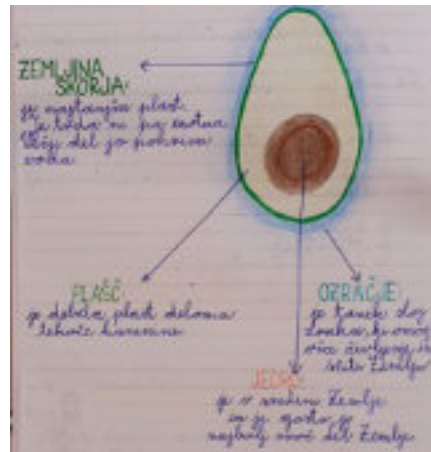 ZEMLJINA
SKORJA:
je najtanjša plast,
je trda ni pa enotna
Večji del jo pokriva
voda
PLAŠČ:
je debela plast deloma
tekoče kamnine
OZRAČJE:
je tanek sloj
zraka, ki omog
oča življenje
Zemlje
JEDRO:
je v sredini Zemlje
in je gosto je
najbolj vroč del Zemlje